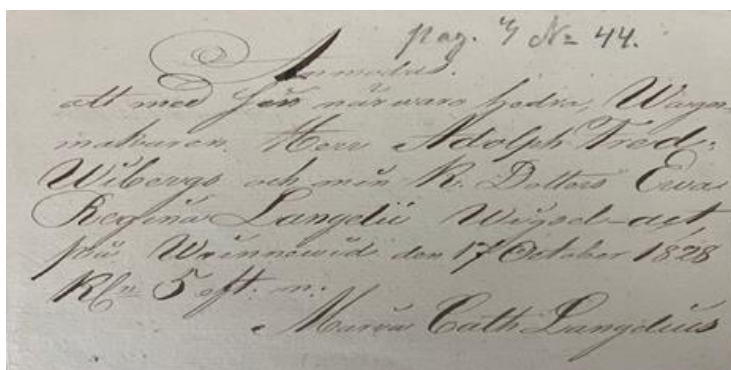 pag. 4 No 44.
Anmodas.
att med Sin närvaro hedra, Wagn-
makaren Herr Adolph Fred:
Wibergs och min K. Dotters Ewa
Regina Langelii Wigsel-act,
på Wrinnewid den 17 October 1828
Kln 5 eft. m:
Maria Cath Langelius